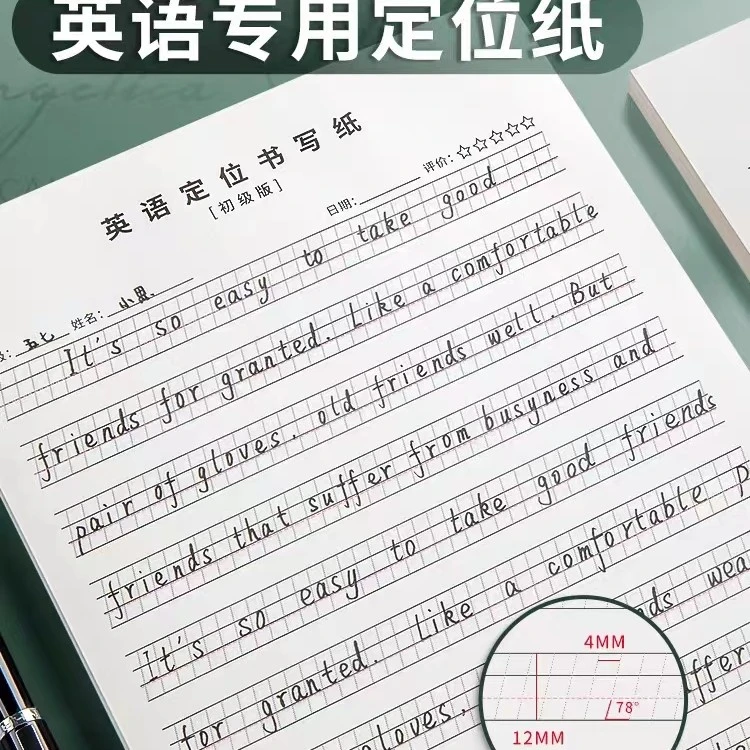 英语专用定位纸
英语定位书写纸
[初级版]
日期： 评价：☆☆☆☆☆
五七 姓名：小思
It's so easy to take good
friends for granted. Like a comfortable
pair of gloves, old friends well. But
friends that suffer from busyness and
It's so easy to take good friends
for granted. Like a comfortable
gloves,
4MM
78°
12MM